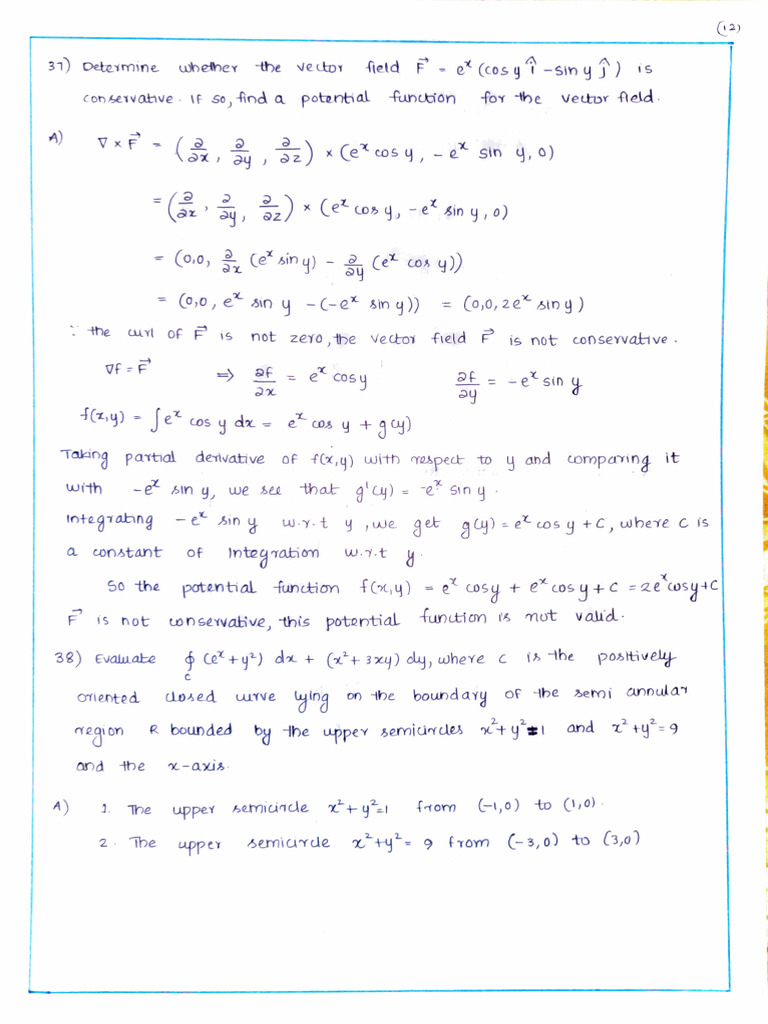 (12)
37) Determine whether the vector field F⃗ = eˣ (cos y î - sin y ĵ) is
conservative. If so, find a potential function for the vector field.
A) ∇ × F⃗ = (∂/∂x, ∂/∂y, ∂/∂z) × (eˣ cos y, - eˣ sin y, 0)
= (∂/∂x, ∂/∂y, ∂/∂z) × (eˣ cos y, -eˣ sin y, 0)
= (0,0, ∂/∂x (eˣ sin y) - ∂/∂y (eˣ cos y))
= (0,0, eˣ sin y - (-eˣ sin y)) = (0,0, 2eˣ sin y)
∵ the curl of F⃗ is not zero, the vector field F⃗ is not conservative.
∇f = F⃗ ⟹ ∂f/∂x = eˣ cos y ∂f/∂y = - eˣ sin y
f(x,y) = ∫ eˣ cos y dx = eˣ cos y + g(y)
Taking partial derivative of f(x,y) with respect to y and comparing it
with -eˣ sin y, we see that g'(y) = -eˣ sin y.
Integrating - eˣ sin y w.r.t y, we get g(y) = eˣ cos y + C, where C is
a constant of Integration w.r.t y.
So the potential function f(x,y) = eˣ cos y + eˣ cos y + C = 2eˣ cos y + C
F⃗ is not conservative, this potential function is not valid.
38) Evaluate ∮_C (eˣ + y²) dx + (x² + 3xy) dy, where C is the positively
oriented closed curve lying on the boundary of the semi annular
region R bounded by the upper semicircles x² + y² = 1 and x² + y² = 9
and the x-axis.
A) 1. The upper semicircle x² + y² = 1 from (-1,0) to (1,0).
2. The upper semicircle x² + y² = 9 from (-3,0) to (3,0)